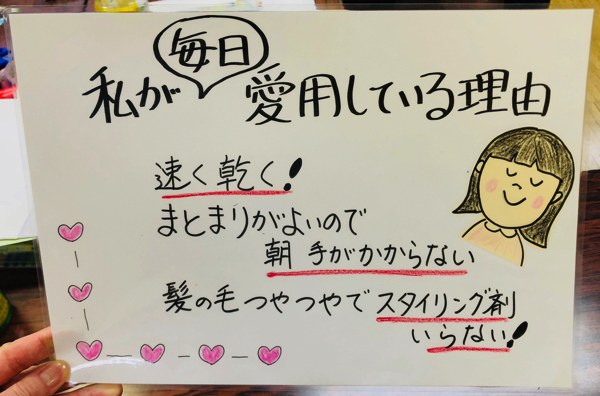 私が毎日愛用している理由
速く乾く!
まとまりがよいので
朝 手がかからない
髪の毛つやつやでスタイリング剤
いらない!